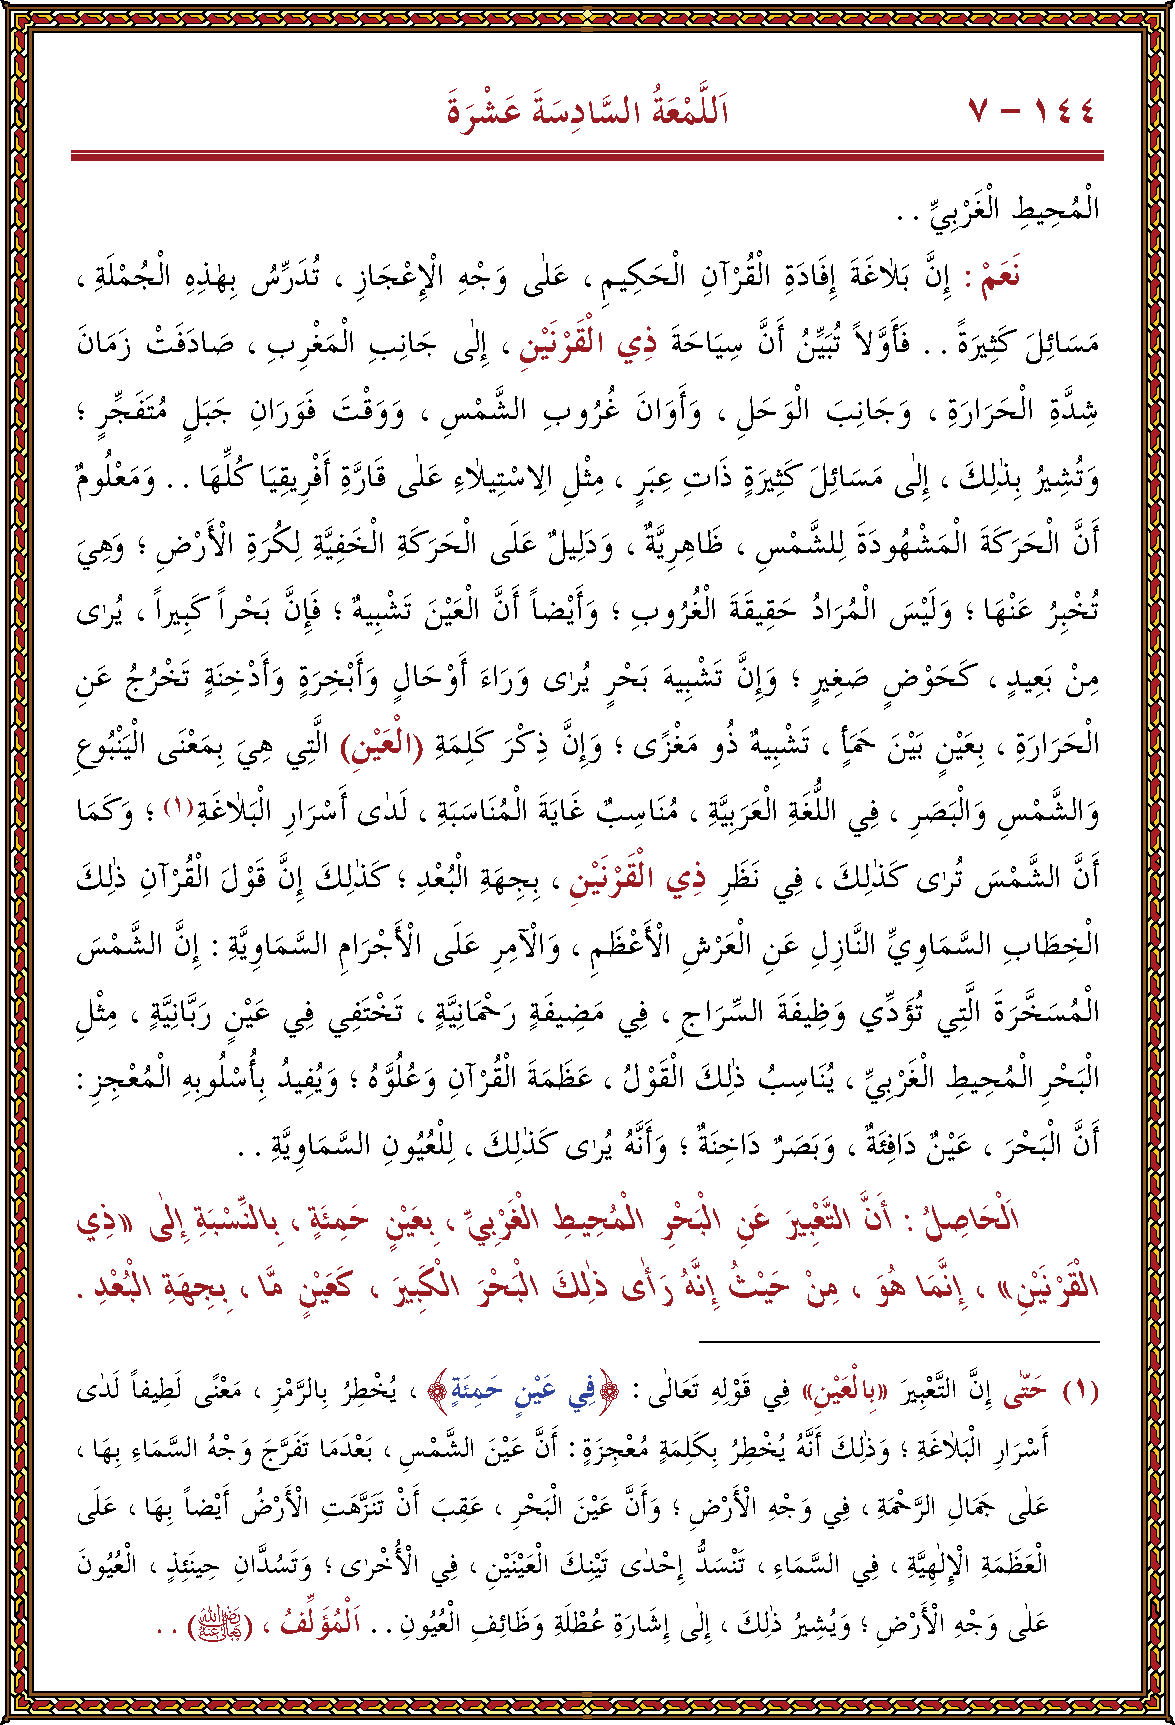 ١٤٤ - ٧ اَللَّمْعَةُ السَّادِسَةَ عَشْرَةَ
الْمُحِيطِ الْغَرْبِيِّ . .
نَعَمْ : إِنَّ بَلَاغَةَ إِفَادَةِ الْقُرْآنِ الْحَكِيمِ ، عَلٰى وَجْهِ الْإِعْجَازِ ، تُدَرِّسُ بِهٰذِهِ الْجُمْلَةِ ،
مَسَائِلَ كَثِيرَةً . . فَأَوَّلاً تُبَيِّنُ أَنَّ سِيَاحَةَ ذِي الْقَرْنَيْنِ ، إِلٰى جَانِبِ الْمَغْرِبِ ، صَادَفَتْ زَمَانَ
شِدَّةِ الْحَرَارَةِ ، وَجَانِبَ الْوَحَلِ ، وَأَوَانَ غُرُوبِ الشَّمْسِ ، وَوَقْتَ فَوَرَانِ جَبَلٍ مُتَفَجِّرٍ ؛
وَتُشِيرُ بِذٰلِكَ ، إِلٰى مَسَائِلَ كَثِيرَةٍ ذَاتِ عِبَرٍ ، مِثْلِ الِاسْتِيلَاءِ عَلٰى قَارَّةِ أَفْرِيقِيَا كُلِّهَا . . وَمَعْلُومٌ
أَنَّ الْحَرَكَةَ الْمَشْهُودَةَ لِلشَّمْسِ ، ظَاهِرِيَّةٌ ، وَدَلِيلٌ عَلَى الْحَرَكَةِ الْخَفِيَّةِ لِكُرَةِ الْأَرْضِ ؛ وَهِيَ
تُخْبِرُ عَنْهَا ؛ وَلَيْسَ الْمُرَادُ حَقِيقَةَ الْغُرُوبِ ؛ وَأَيْضاً أَنَّ الْعَيْنَ تَشْبِيهٌ ؛ فَإِنَّ بَحْراً كَبِيراً ، يُرٰى
مِنْ بَعِيدٍ ، كَحَوْضٍ صَغِيرٍ ؛ وَإِنَّ تَشْبِيهَ بَحْرٍ يُرٰى وَرَاءَ أَوْحَالٍ وَأَبْخِرَةٍ وَأَدْخِنَةٍ تَخْرُجُ عَنِ
الْحَرَارَةِ ، بِعَيْنٍ بَيْنَ حَمَأٍ ، تَشْبِيهٌ ذُو مَغْزًى ؛ وَإِنَّ ذِكْرَ كَلِمَةِ (الْعَيْنِ) الَّتِي هِيَ بِمَعْنَى الْيَنْبُوعِ
وَالشَّمْسِ وَالْبَصَرِ ، فِي اللُّغَةِ الْعَرَبِيَّةِ ، مُنَاسِبٌ غَايَةَ الْمُنَاسَبَةِ ، لَدٰى أَسْرَارِ الْبَلَاغَةِ(١) ؛ وَكَمَا
أَنَّ الشَّمْسَ تُرٰى كَذٰلِكَ ، فِي نَظَرِ ذِي الْقَرْنَيْنِ ، بِجِهَةِ الْبُعْدِ ؛ كَذٰلِكَ إِنَّ قَوْلَ الْقُرْآنِ ذٰلِكَ
الْخِطَابِ السَّمَاوِيِّ النَّازِلِ عَنِ الْعَرْشِ الْأَعْظَمِ ، وَالْآمِرِ عَلَى الْأَجْرَامِ السَّمَاوِيَّةِ : إِنَّ الشَّمْسَ
الْمُسَخَّرَةَ الَّتِي تُؤَدِّي وَظِيفَةَ السِّرَاجِ ، فِي مَضِيفَةٍ رَحْمَانِيَّةٍ ، تَخْتَفِي فِي عَيْنٍ رَبَّانِيَّةٍ ، مِثْلِ
الْبَحْرِ الْمُحِيطِ الْغَرْبِيِّ ، يُنَاسِبُ ذٰلِكَ الْقَوْلُ ، عَظَمَةَ الْقُرْآنِ وَعُلُوَّهُ ؛ وَيُفِيدُ بِأُسْلُوبِهِ الْمُعْجِزِ :
أَنَّ الْبَحْرَ ، عَيْنٌ دَافِئَةٌ ، وَبَصَرٌ دَاخِنَةٌ ؛ وَأَنَّهُ يُرٰى كَذٰلِكَ ، لِلْعُيُونِ السَّمَاوِيَّةِ . .
اَلْحَاصِلُ : أَنَّ التَّعْبِيرَ عَنِ الْبَحْرِ الْمُحِيطِ الْغَرْبِيِّ ، بِعَيْنٍ حَمِئَةٍ ، بِالنِّسْبَةِ إِلٰى «ذِي
الْقَرْنَيْنِ» ، إِنَّمَا هُوَ ، مِنْ حَيْثُ إِنَّهُ رَأٰى ذٰلِكَ الْبَحْرَ الْكَبِيرَ ، كَعَيْنٍ مَّا ، بِجِهَةِ الْبُعْدِ .
(١) حَتّٰى إِنَّ التَّعْبِيرَ «بِالْعَيْنِ» فِي قَوْلِهِ تَعَالٰى : ﴿فِي عَيْنٍ حَمِئَةٍ﴾ ، يُخْطِرُ بِالرَّمْزِ ، مَعْنًى لَطِيفاً لَدٰى
أَسْرَارِ الْبَلَاغَةِ ؛ وَذٰلِكَ أَنَّهُ يُخْطِرُ بِكَلِمَةٍ مُعْجِزَةٍ : أَنَّ عَيْنَ الشَّمْسِ ، بَعْدَمَا تَفَرَّجَ وَجْهُ السَّمَاءِ بِهَا ،
عَلٰى جَمَالِ الرَّحْمَةِ ، فِي وَجْهِ الْأَرْضِ ؛ وَأَنَّ عَيْنَ الْبَحْرِ ، عَقِبَ أَنْ تَنَزَّهَتِ الْأَرْضُ أَيْضاً بِهَا ، عَلَى
الْعَظَمَةِ الْإِلٰهِيَّةِ ، فِي السَّمَاءِ ، تَنْسَدُّ إِحْدٰى تَيْنِكَ الْعَيْنَيْنِ ، فِي الْأُخْرٰى ؛ وَتَسُدَّانِ حِينَئِذٍ ، الْعُيُونَ
عَلٰى وَجْهِ الْأَرْضِ ؛ وَيُشِيرُ ذٰلِكَ ، إِلٰى إِشَارَةِ عُطْلَةِ وَظَائِفِ الْعُيُونِ . . اَلْمُؤَلِّفُ ، (رضي الله تعالى عنه) . .